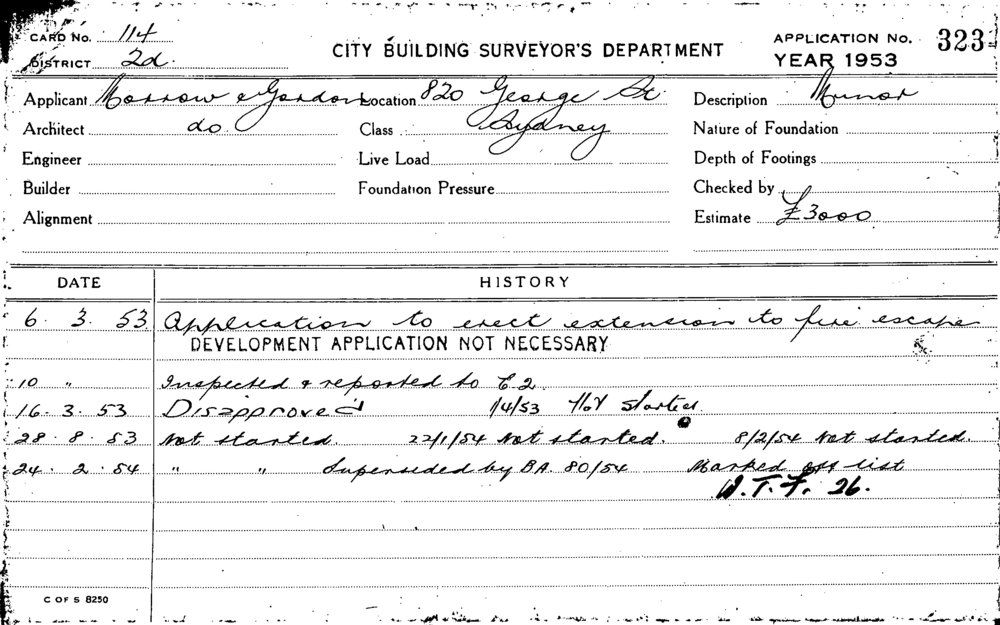 CARD No. 114
DISTRICT 2d.
CITY BUILDING SURVEYOR'S DEPARTMENT
APPLICATION No. 323
YEAR 1953
Applicant Morrow & Gordon Location 820 George St Description Minor
Architect do Class Sydney Nature of Foundation
Engineer Live Load Depth of Footings
Builder Foundation Pressure Checked by
Alignment Estimate £3000
DATE HISTORY
6. 3. 53 Application to erect extension to fire escape
DEVELOPMENT APPLICATION NOT NECESSARY
10 " Inspected & reported to E.2.
16. 3. 53 Disapproved 1/4/53 Not started.
28. 8. 53 Not started. 22/1/54 Not started. 8/2/54 Not started.
24. 2. 54 " " Superseded by BA. 80/54 Marked off list
W.T.F. 26.
C OF S 8250